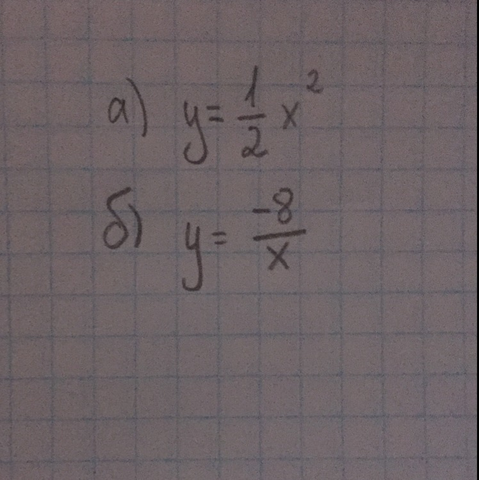 а) y = 1/2 x²
б) y = -8/x